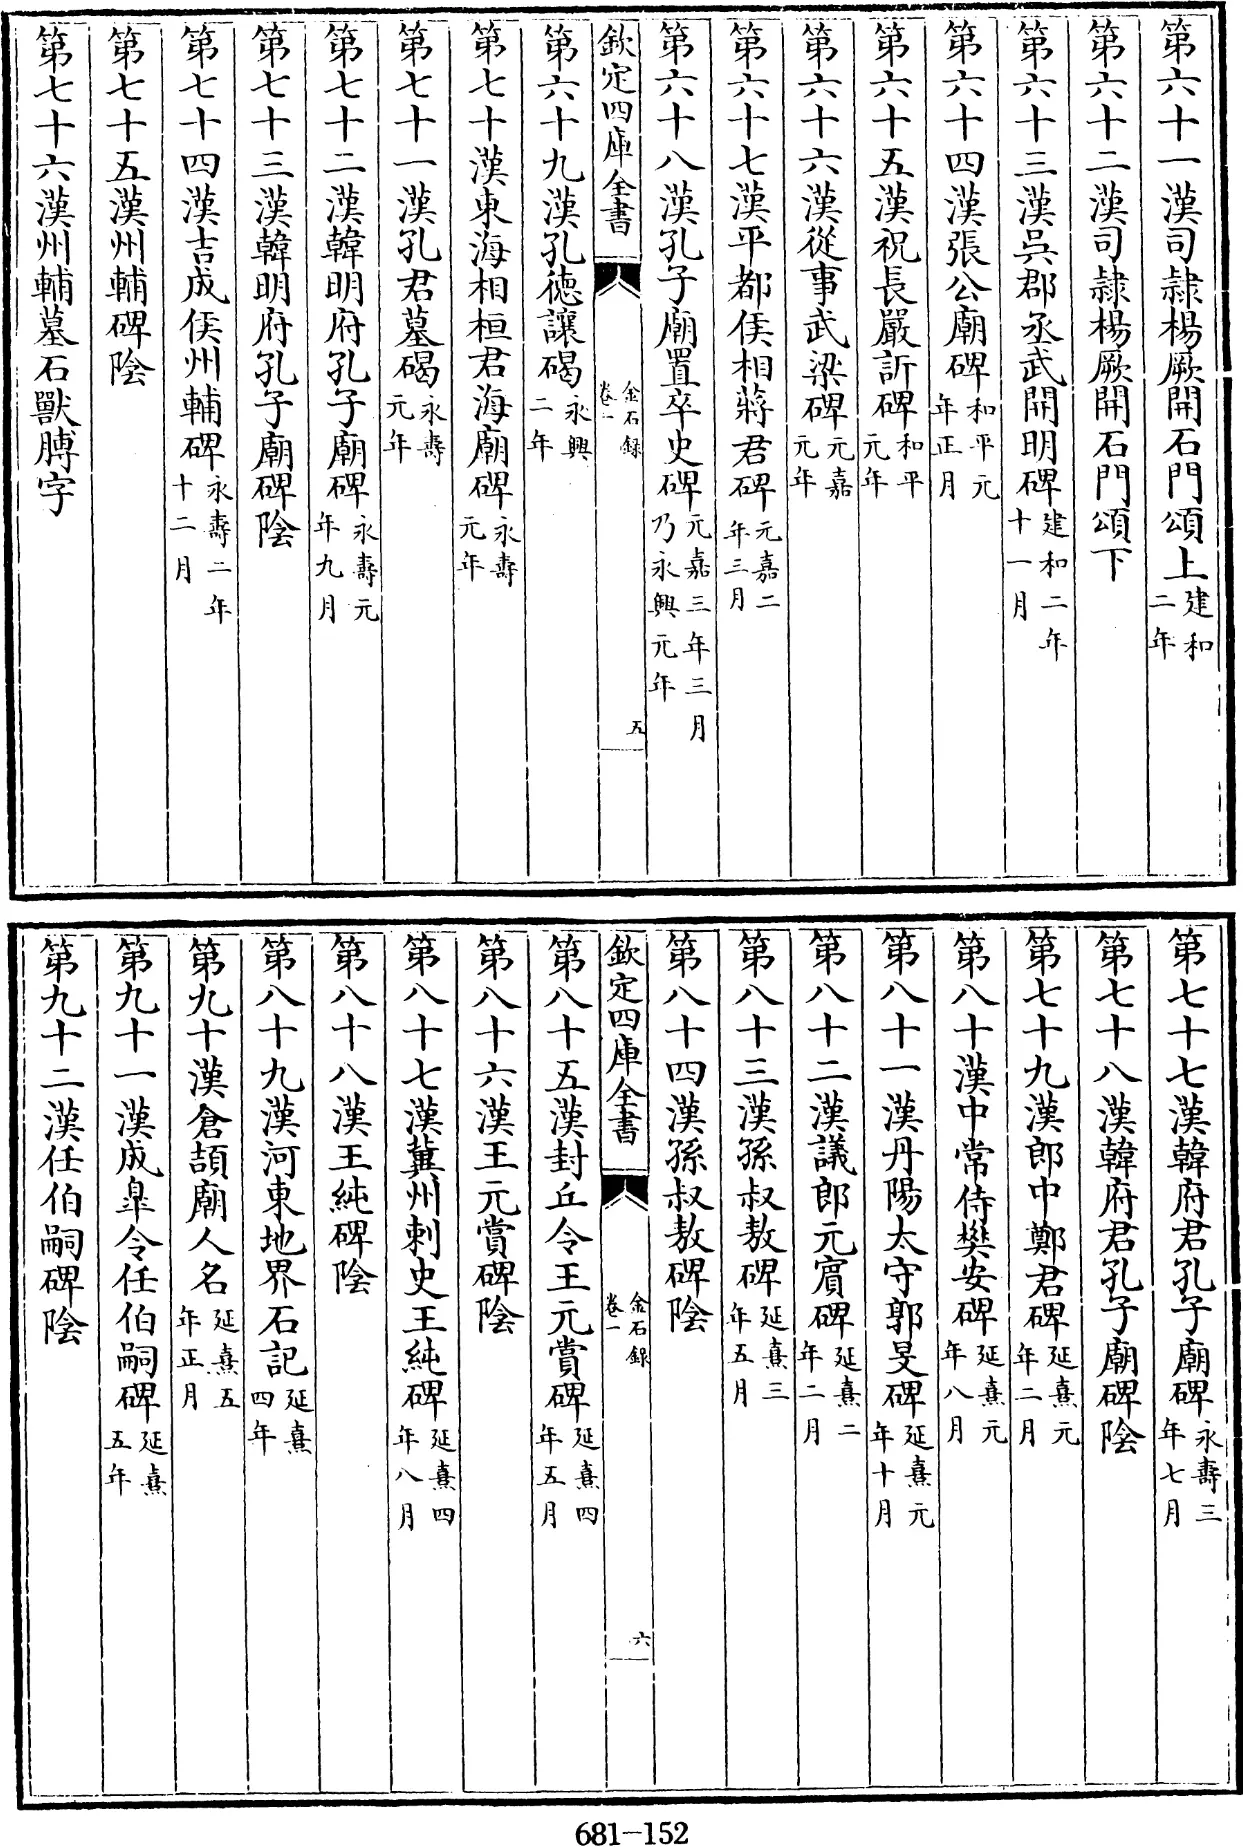 第六十一漢司隷楊厥開石門頌上建和二年
第六十二漢司隷楊厥開石門頌下
第六十三漢呉郡丞武開明碑建和二年十一月
第六十四漢張公廟碑和平元年正月
第六十五漢祝長嚴訢碑和平元年
第六十六漢從事武梁碑元嘉元年
第六十七漢平都侯相蔣君碑元嘉二年三月
第六十八漢孔子廟置卒史碑元嘉三年三月乃永興元年
欽定四庫全書
金石録
卷一
五
第六十九漢孔德讓碣永興二年
第七十漢東海相桓君海廟碑永壽元年
第七十一漢孔君墓碣永壽元年
第七十二漢韓明府孔子廟碑永壽元年九月
第七十三漢韓明府孔子廟碑陰
第七十四漢吉成侯州輔碑永壽二年十二月
第七十五漢州輔碑陰
第七十六漢州輔墓石獸膊字
第七十七漢韓府君孔子廟碑永壽三年七月
第七十八漢韓府君孔子廟碑陰
第七十九漢郎中鄭君碑延熹元年二月
第八十漢中常侍樊安碑延熹元年八月
第八十一漢丹陽太守郭旻碑延熹元年十月
第八十二漢議郎元賔碑延熹二年二月
第八十三漢孫叔敖碑延熹三年五月
第八十四漢孫叔敖碑陰
欽定四庫全書
金石錄
卷一
六
第八十五漢封丘令王元賞碑延熹四年五月
第八十六漢王元賞碑陰
第八十七漢冀州刺史王純碑延熹四年八月
第八十八漢王純碑陰
第八十九漢河東地界石記延熹四年
第九十漢倉頡廟人名延熹五年正月
第九十一漢成臯令任伯嗣碑延熹五年
第九十二漢任伯嗣碑陰
681-152